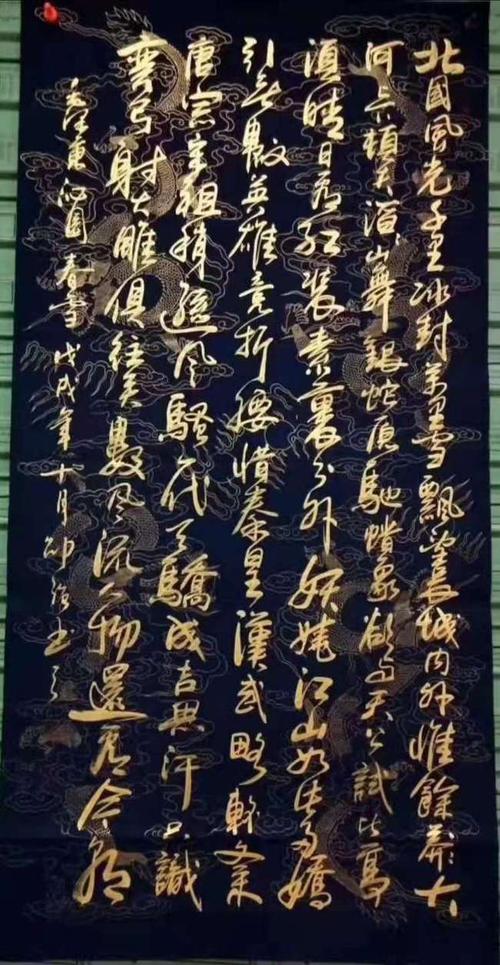 北國風光千里冰封万里雪飄望長城内外惟餘莽大
河上下頓失滔山舞銀蛇原馳蠟象欲与天公試比高
須晴日看紅裝素裹分外妖嬈江山如此多嬌
引無數英雄竞折腰惜秦皇漢武略輸文采
唐宗宋祖稍遜風騷一代天驕成吉思汗只識
彎弓射大雕俱往矣數風流人物還看今朝
毛澤東沁園春雪 戊戌年十月